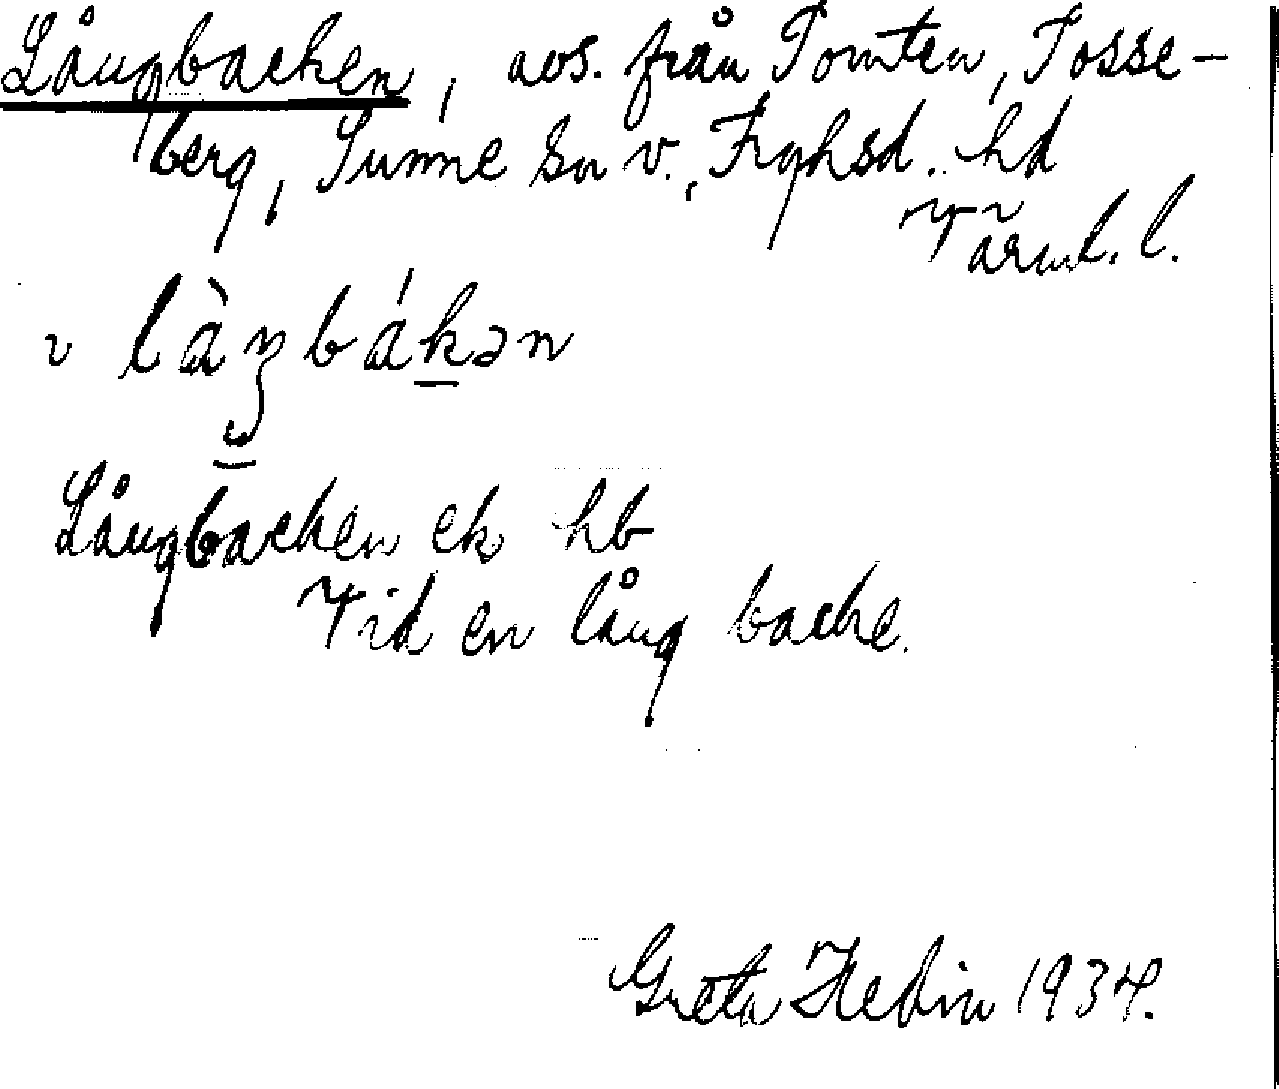 Långbacken, avs. från Tomten, Tosse-
berg, Sunne sn v., Fryksd. hd
Värml. l.
v làŋbákən
Långbacken ek hb
Vid en lång backe.
Greta Hedin 1934.